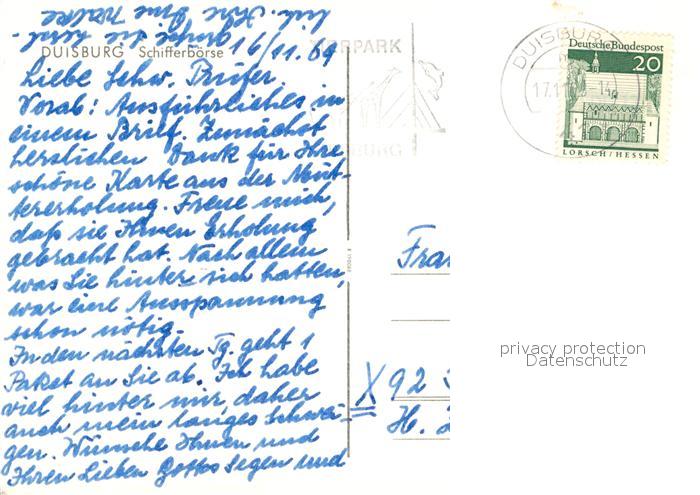 DUISBURG Schifferbörse
16/11.69
Liebe Schw. Prüfer.
Vorab: Ausführliches in
einem Brief. Zunächst
herzlichen Dank für Ihre
schöne Karte aus der Müt-
tererholung. Freue mich,
daß sie Ihnen Erholung
gebracht hat. Nach allem
was Sie hinter sich hatten,
war eine Ausspannung
schon nötig.
In den nächsten Tg. geht 1
Paket an Sie ab. Ich habe
viel hinter mir, daher
auch mein langes Schwei-
gen. Wünsche Ihnen und
Ihren Lieben Gottes Segen und
Ihre
DUISBURG
17.11.
Deutsche Bundespost
20
LORSCH/HESSEN
Frau
X 92
H.
privacy protection
Datenschutz